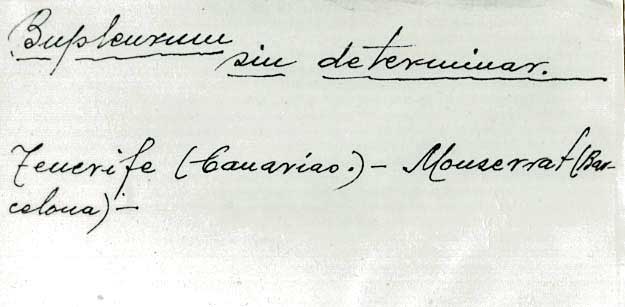 Bupleurum
sin determinar.
Tenerife (Canarias.)- Monserrat (Bar-
celona)-